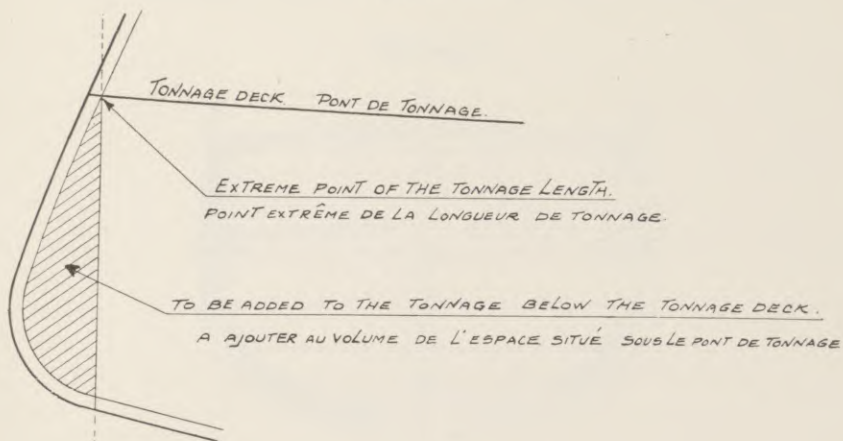 TONNAGE DECK. PONT DE TONNAGE.
EXTREME POINT OF THE TONNAGE LENGTH.
POINT EXTRÊME DE LA LONGUEUR DE TONNAGE.
TO BE ADDED TO THE TONNAGE BELOW THE TONNAGE DECK.
A AJOUTER AU VOLUME DE L'ESPACE SITUÉ SOUS LE PONT DE TONNAGE